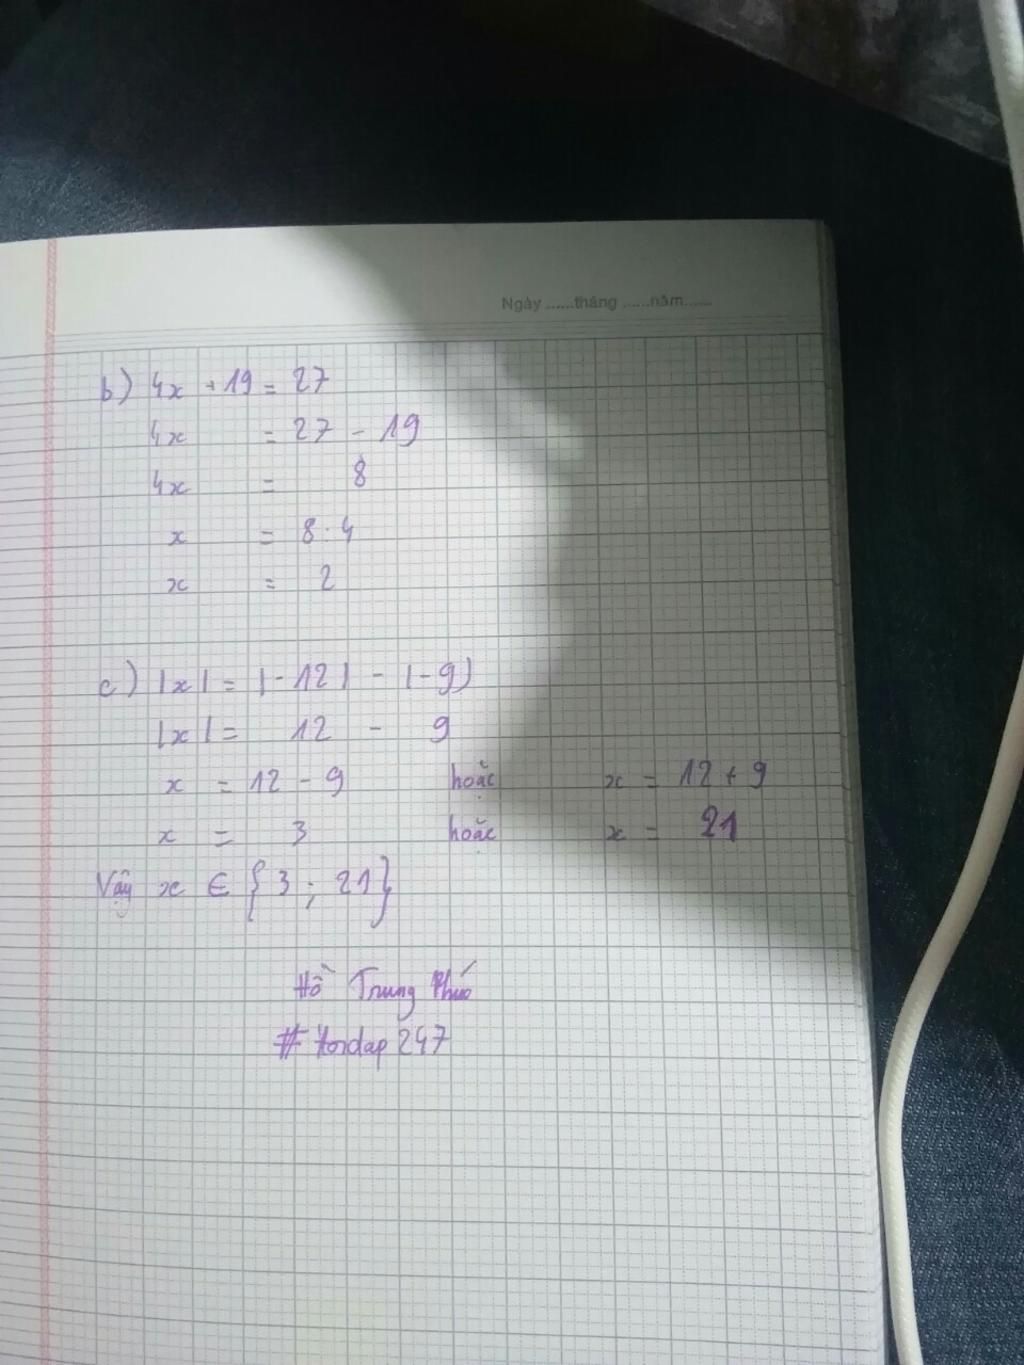 Ngày ......tháng ......năm......
b) 4x + 19 = 27
4x = 27 - 19
4x = 8
x = 8 : 4
x = 2
c) |x| = |-12| - |-9|
|x| = 12 - 9
x = 12 - 9 hoặc x = 12 + 9
x = 3 hoặc x = 21
Vậy x ∈ {3 ; 21}
Hồ Trung Phúc
# 247